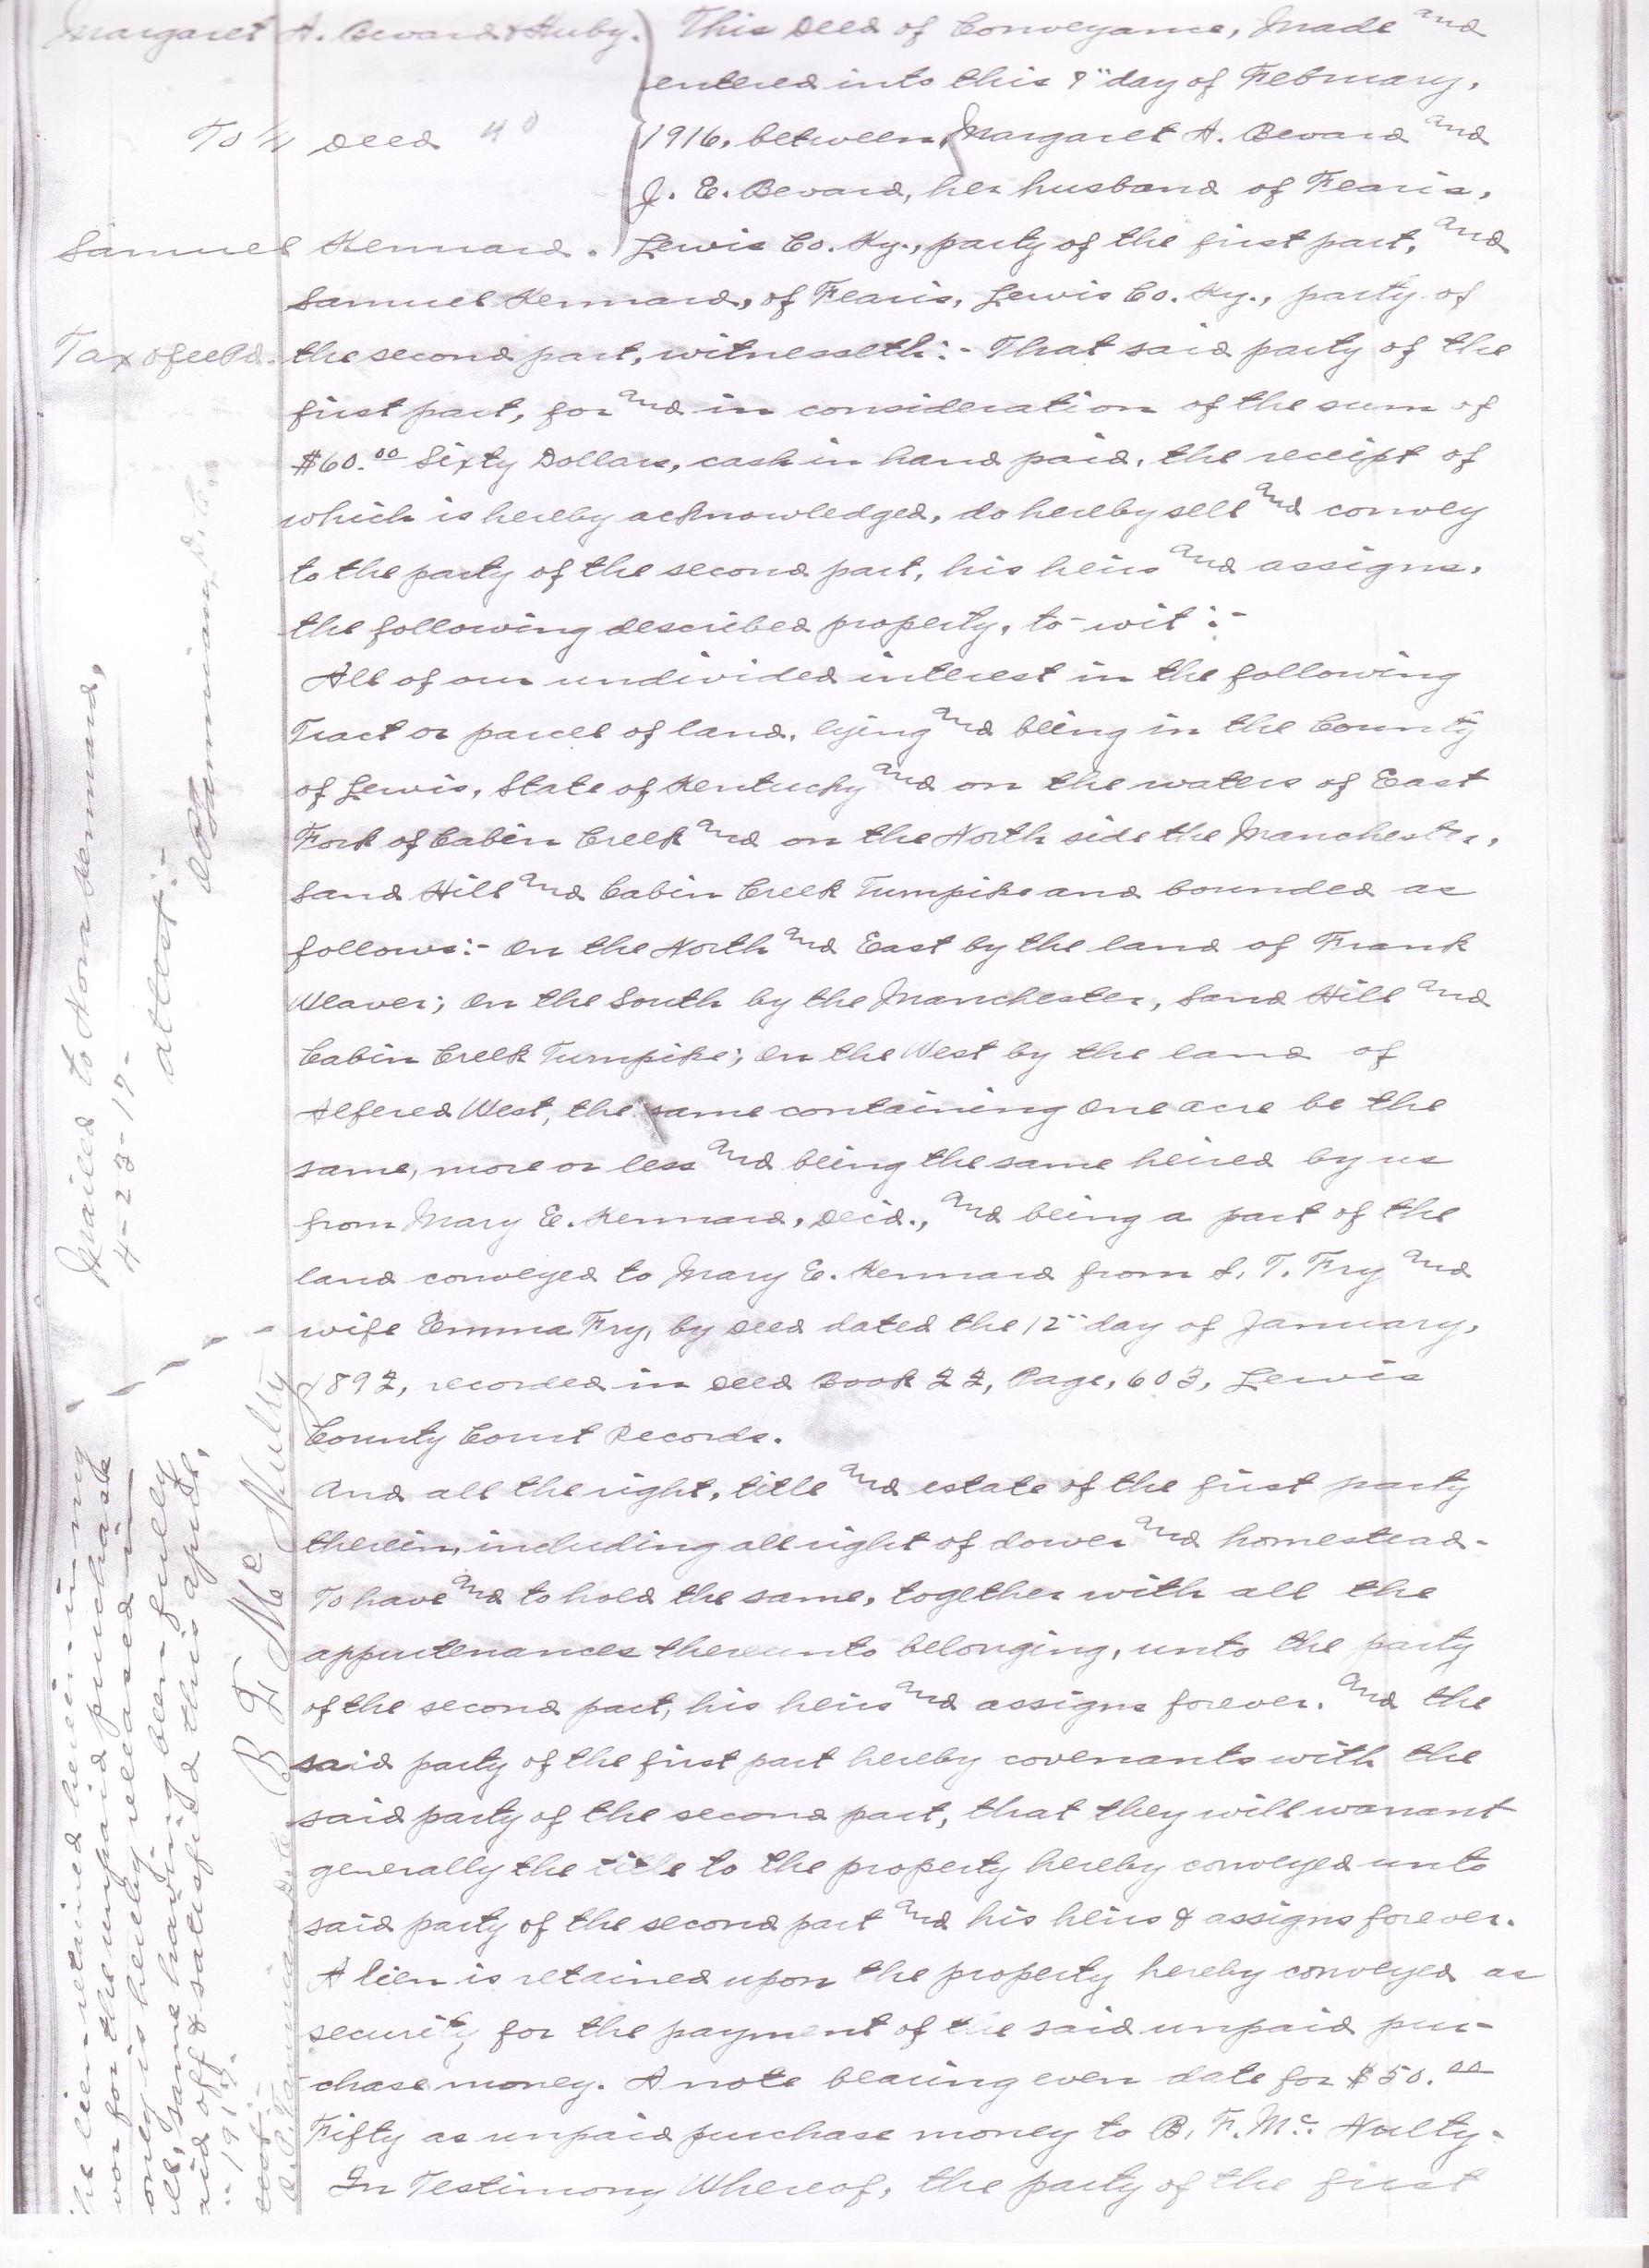 Margaret A. Bevard & Husby.
To // Deed 40
Samuel Kennard.
Tax & fee Pd.
This Deed of Conveyance, Made and
entered into this 8" day of February,
1916, between, Margaret A. Bevard and
J. E. Bevard, her husband of Fearis,
Lewis Co. Ky., party of the first part, and
Samuel Kennard, of Fearis, Lewis Co. Ky., party of
the second part, witnesseth:- That said party of the
first part, for and in consideration of the sum of
$60.00 Sixty Dollars, cash in hand paid, the receipt of
which is hereby acknowledged, do hereby sell and convey
to the party of the second part, his heirs and assigns,
the following described property, to-wit:-
All of our undivided interest in the following
Tract or parcel of land, lying and being in the County
of Lewis, State of Kentucky and on the waters of East
Fork of Cabin Creek and on the North side the Manchester,
Sand Hill and Cabin Creek Turnpike and bounded as
follows:- On the North and East by the land of Frank
Weaver; On the South by the Manchester, Sand Hill and
Cabin Creek Turnpike; On the West by the land of
Alfered West, the same containing One acre be the
same, more or less and being the same heired by us
from Mary E. Kennard, Decd., and being a part of the
land conveyed to Mary E. Kennard from S. T. Fry and
wife Emma Fry, by Deed dated the 12" day of January,
1892, recorded in Deed Book 22, Page, 603, Lewis
County Court Records.
And all the right, title and estate of the first party
therein, including all right of dower and homestead-
To have and to hold the same, together with all the
appurtenances thereunto belonging, unto the party
of the second part, his heirs and assigns forever. And the
said party of the first part hereby covenants with the
said party of the second part, that they will warrant
generally the title to the property hereby conveyed unto
said party of the second part and his heirs & assigns forever.
A lien is retained upon the property hereby conveyed as
security for the payment of the said unpaid pur-
chase money. A note bearing even date for $50.00
Fifty as unpaid purchase money to B. F. Mc. Nulty-
In Testimony Whereof, the party of the first
Mailed to Nora Kennard,
4-23-17-
attest:-
he lien retained herein in my
vor for the unpaid purchase
oney is hereby released in
ll, same having been fully
aid off & satisfied this april,
1917-
B F McNulty